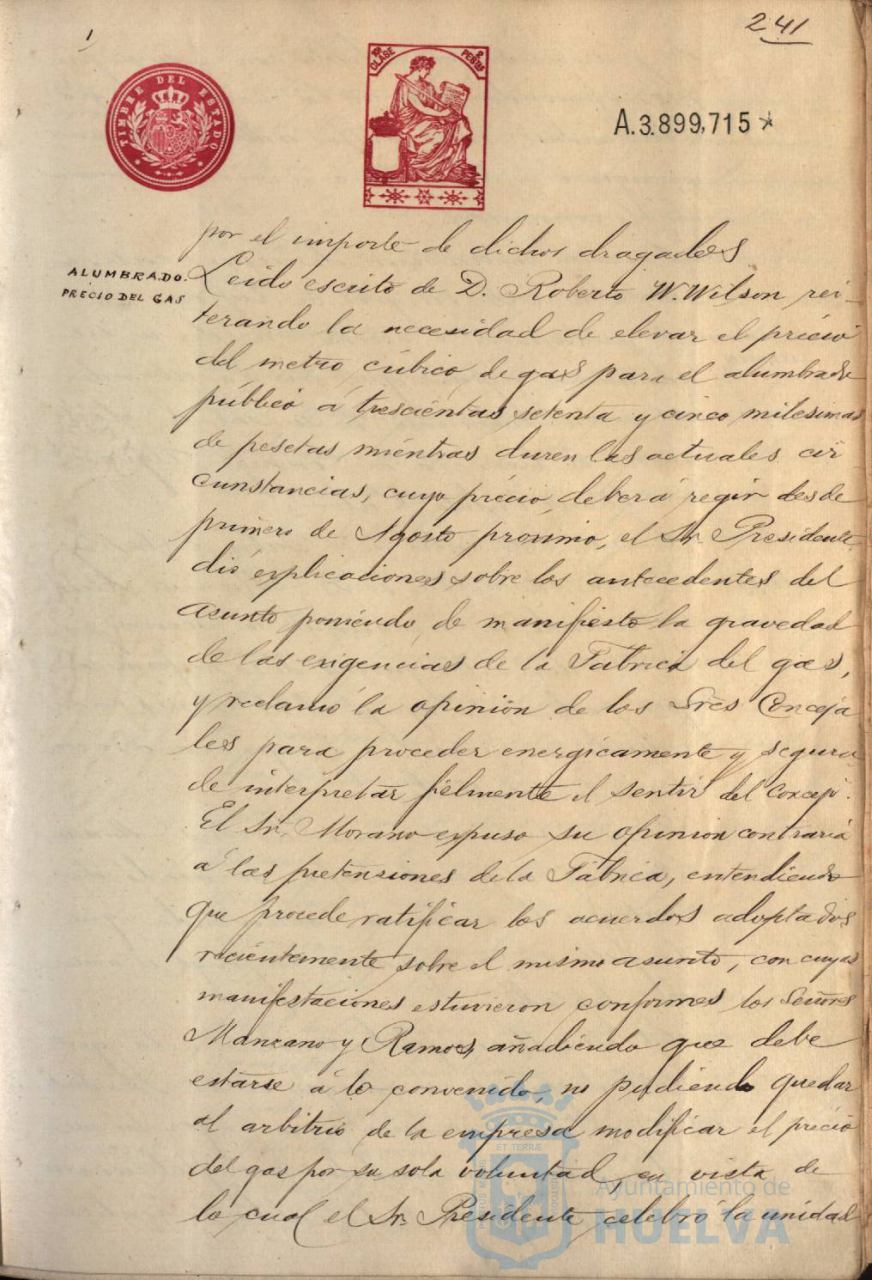 1
241
TIMBRE DEL ESTADO
10 CLASE 2 PESETAS
A.3.899,715*
por el importe de dichos dragades
ALUMBRADO.
PRECIO DEL GAS
Leido escrito de D. Roberto W. Wilson rei-
terando la necesidad de elevar el précio
del metro cúbico de gas para el alumbrado
público á trescientas setenta y cinco milesimas
de pesetas mientras duren las actuales cir
cunstancias, cuyo précio deberá regir desde
primero de Agosto proximo, el Sr. Presidente
dió explicaciones sobre los antecedentes del
asunto poniendo de manifiesto la gravedad
de las exigencias de la Fábrica del gas,
y reclamó la opinión de los Sres Conceja
les para proceder energicamente y seguro
de interpretar fielmente el sentir del Concejo.
El Sr. Morano expuso su opinion contraria
á las pretensiones de la Fábrica, entendiendo
que procede ratificar los acuerdos adoptados
recientemente sobre el mismo asunto, con cuyas
manifestaciones estuvieron conformes los Señores
Manzano y Ramos, añadiendo que debe
estarse á lo convenido, no pudiendo quedar
al arbitrio de la empresa modificar el précio
del gas por su sola voluntad, en vista de
lo cual el Sr. Presidente celebró la unidad
ET TERRÆ
Ayuntamiento de
HUELVA